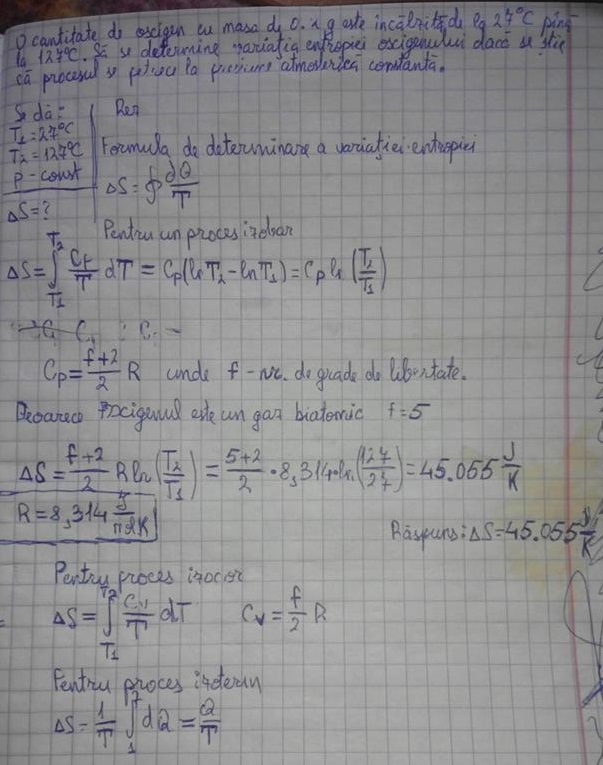 O cantitate de oscigen cu masa de 0.1 g este încălzită de la 27°C pînă
la 127°C. Să se determine variația entropiei oscigenului dacă se știe
că procesul se petrece la presiune atmosferică constantă.
Se dă: Rez
T₁=27°C
T₂=127°C
p-const
ΔS=?
Formula de determinare a variației entropiei
ΔS=∮ dQ/T
Pentru un proces izobar
ΔS=∫_{T₁}^{T₂} Cp/T dT = Cp(ln T₂-ln T₁)=Cp ln (T₂/T₁)
Cp= f+2/2 R unde f-nr. de grade de libertate.
Deoarece oxcigenul este un gaz biatomic f=5
ΔS= f+2/2 R ln (T₂/T₁) = 5+2/2 · 8,314·ln (127/27)=45.055 J/K
R=8,314 J/molK
Răspuns: ΔS=45.055 J/K
Pentru proces izocor
ΔS=∫_{T₁}^{T₂} Cv/T dT Cv= f/2 R
Pentru proces izoterm
ΔS= 1/T ∫ dQ = Q/T